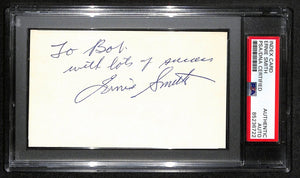 To Bob
with lots of success
Ernie Smith
INDEX CARD
ERNIE SMITH
PSA/DNA CERTIFIED
AUTHENTIC
AUTO
PSA
85236722